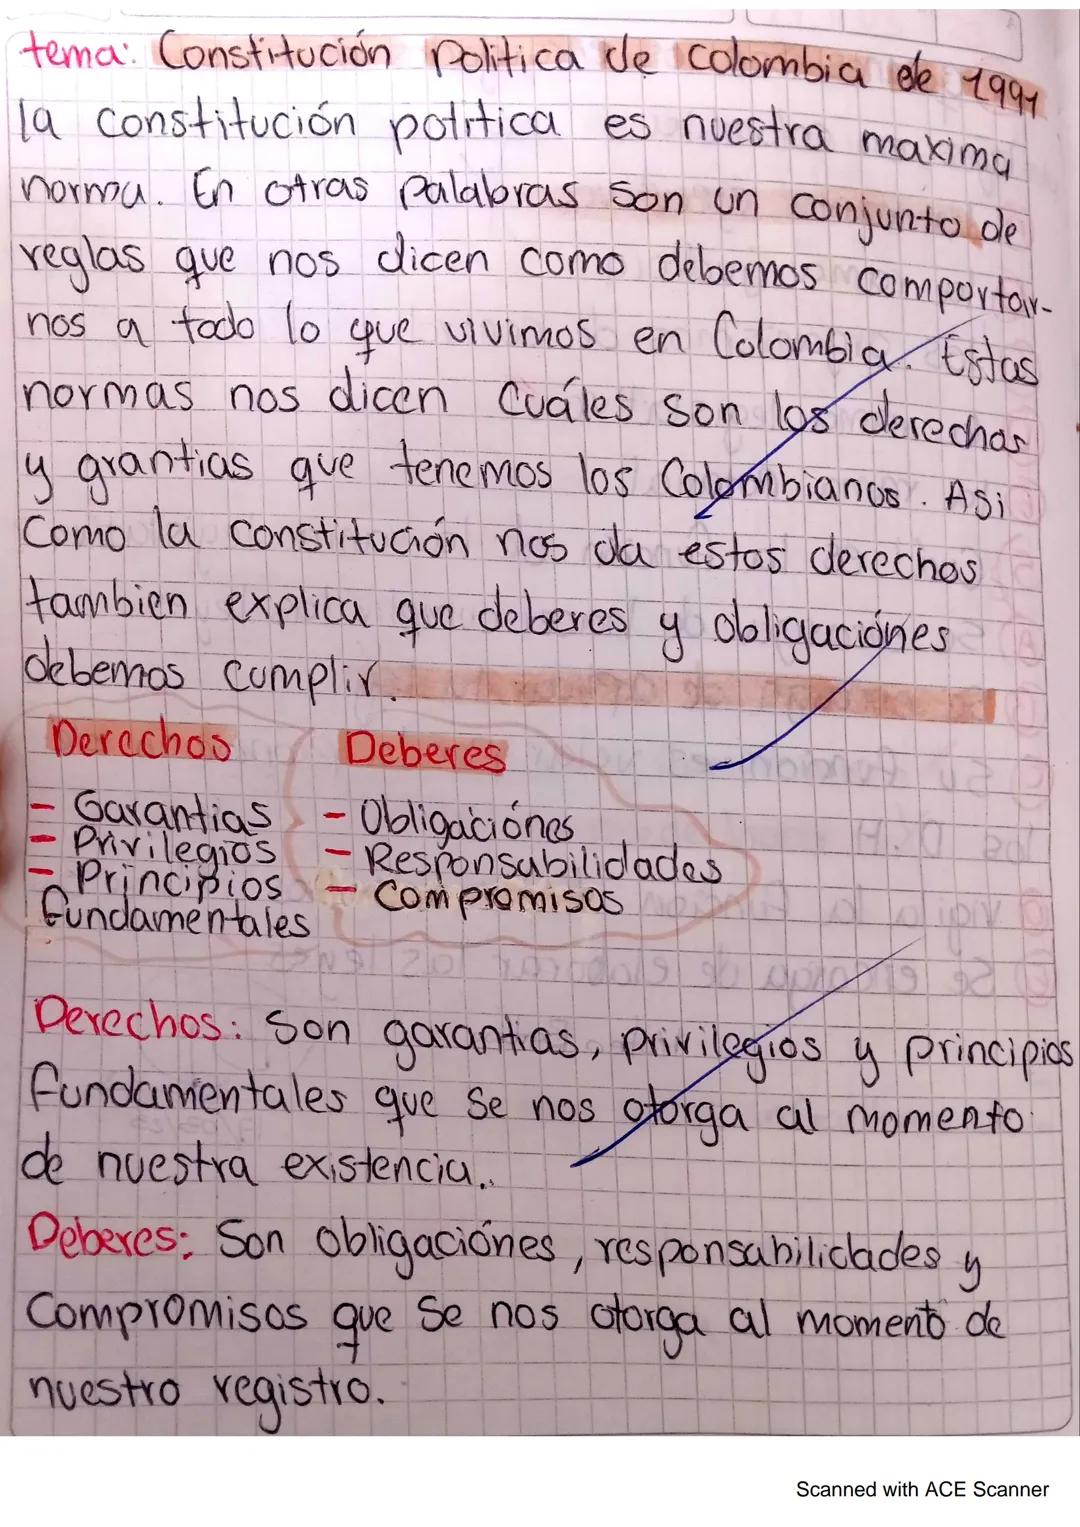 tema: Constitución Politica de Colombia de 1991
la constitución potitica es nuestra maxima
norma. En otras palabras son un conjunto de
reglas que nos dicen como debemos comportar-
nos a todo lo que vivimos en Colombia. Estas
normas nos dicen Cuáles son los derechos
y grantias que tenemos los Colombianos. Asi
Como la constitución nos da estos derechos
tambien explica que deberes y obligaciónes
debemos cumplir.
Derechos Deberes
- Garantias - Obligaciónes
- Privilegios - Responsabilidades
- Principios - Compromisos
fundamentales
Derechos: Son garantias, privilegios y principios
fundamentales que se nos otorga al momento
de nuestra existencia..
Deberes: Son obligaciónes, responsabilidades y
Compromisos que se nos otorga al momento de
nuestro registro.
Scanned with ACE Scanner